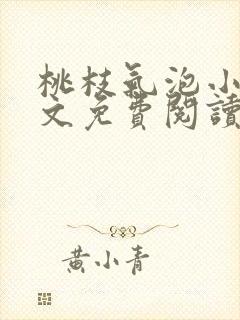 桃枝氣泡小
文免費閱讀
黃小青